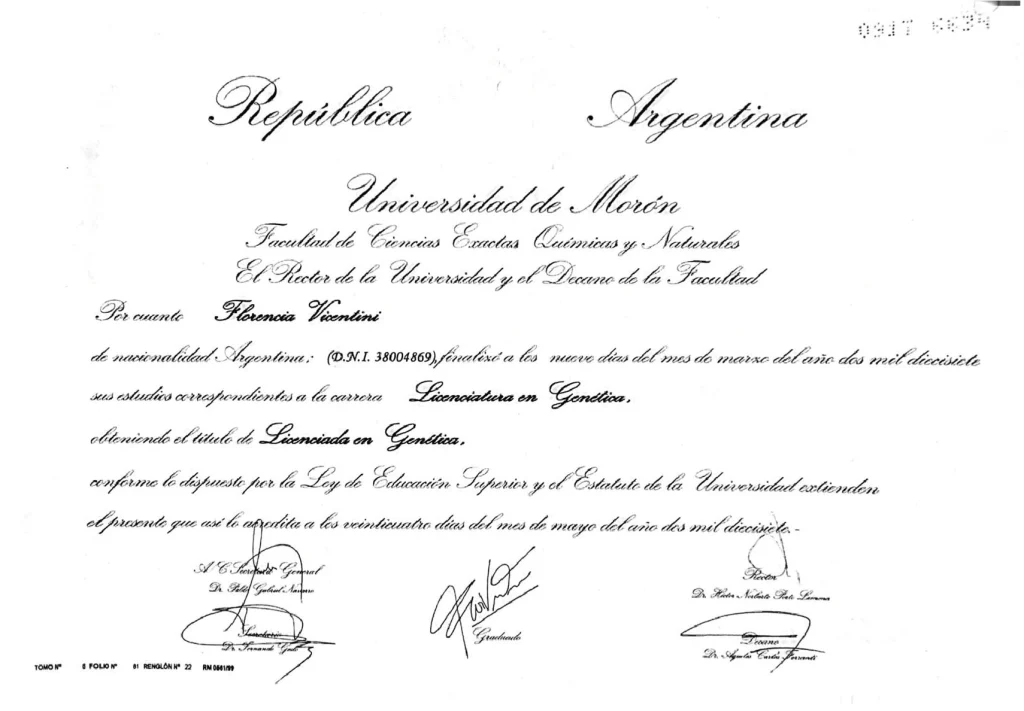 0917 6634
República Argentina
Universidad de Morón
Facultad de Ciencias Exactas Químicas y Naturales
El Rector de la Universidad y el Decano de la Facultad
Por cuanto Florencia Vicentini
de nacionalidad Argentina: (D.N.I. 38004869), finalizó a los nueve días del mes de marzo del año dos mil diecisiete
sus estudios correspondientes a la carrera Licenciatura en Genética,
obteniendo el título de Licenciada en Genética,
conforme lo dispuesto por la Ley de Educación Superior y el Estatuto de la Universidad extienden
el presente que así lo acredita a los veinticuatro días del mes de mayo del año dos mil diecisiete.-
A/C Secretaría General
Dr. Pablo Gabriel Navarro
Rector
Dr. Héctor Norberto Porto Lemma
Secretario
Dr. Fernando
Graduado
Decano
Dr. Agustín Carlos
TOMO Nº 6 FOLIO Nº 61 RENGLÓN Nº 22 RM